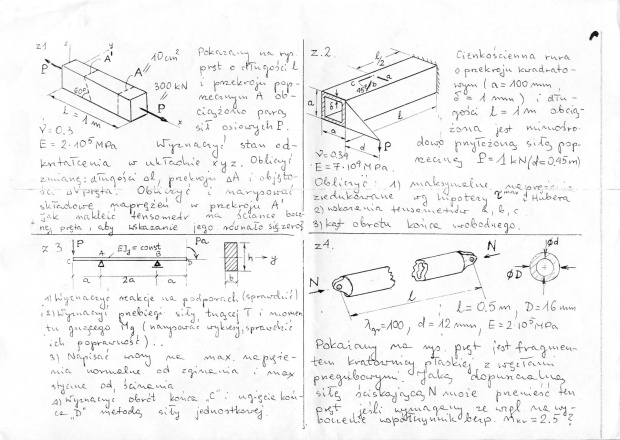 z1
A
y
A'
10 cm²
P
300 kN
P
60°
L = 1 m
x
ν = 0.3
E = 2·10⁵ MPa
Pokazany na rys.
pręt o długości l
i przekroju pop-
rzecznym A ob-
ciążono parą
sił osiowych P.
Wyznaczyć stan od-
kształcenia w układzie xyz. Obliczyć
zmianę: długości Δl, przekroju ΔA i objęto-
ści ΔV pręta. Obliczyć i narysować
składowe naprężeń w przekroju A'
Jak nakleić tensometr na ściance bocz-
nej pręta, aby wskazanie jego równało się zero?
z.2
l/2
c
b
a
45°
a
δ
a
d
l
P
ν = 0.34
E = 7·10⁴ MPa
Cienkościenna rura
o przekroju kwadrato-
wym (a = 100 mm,
δ = 1 mm) i dłu-
gości l = 1 m obcią-
żona jest mimośro-
dowo przyłożoną siłą pop-
rzeczną P = 1 kN (d = 0,45 m)
Obliczyć: 1) maksymalne naprężenie
zredukowane wg hipotezy τmax i Hubera
2) wskazania tensometrów a, b, c
3) kąt obrotu końca swobodnego.
z 3
P
EJy = const
Pa
C
A
B
D
a
2a
a
h
y
b
1) Wyznaczyć reakcje na podporach (sprawdzić!)
2) Wyznaczyć przebiegi siły tnącej T i momen-
tu gnącego Mg (narysować wykresy, sprawdzić
ich poprawność)..
3) Napisać wzory na max. napręże-
nia normalne od zginania i max
styczne od ścinania
4) Wyznaczyć obrót końca „C" i ugięcie koń-
ca „D" metodą siły jednostkowej.
z4.
N
N
l
Ød
ØD
l = 0.5 m, D = 16 mm
λgr = 100, d = 12 mm, E = 2·10⁵ MPa
Pokazany na rys. pręt jest fragmen-
tem kratownicy płaskiej z węzłami
przegubowymi. Jaką dopuszczalną
siłę ściskającą N może przenieść ten
pręt jeśli wymagany ze wzgl. na wy-
boczenie współczynnik bezp. nw = 2.5?